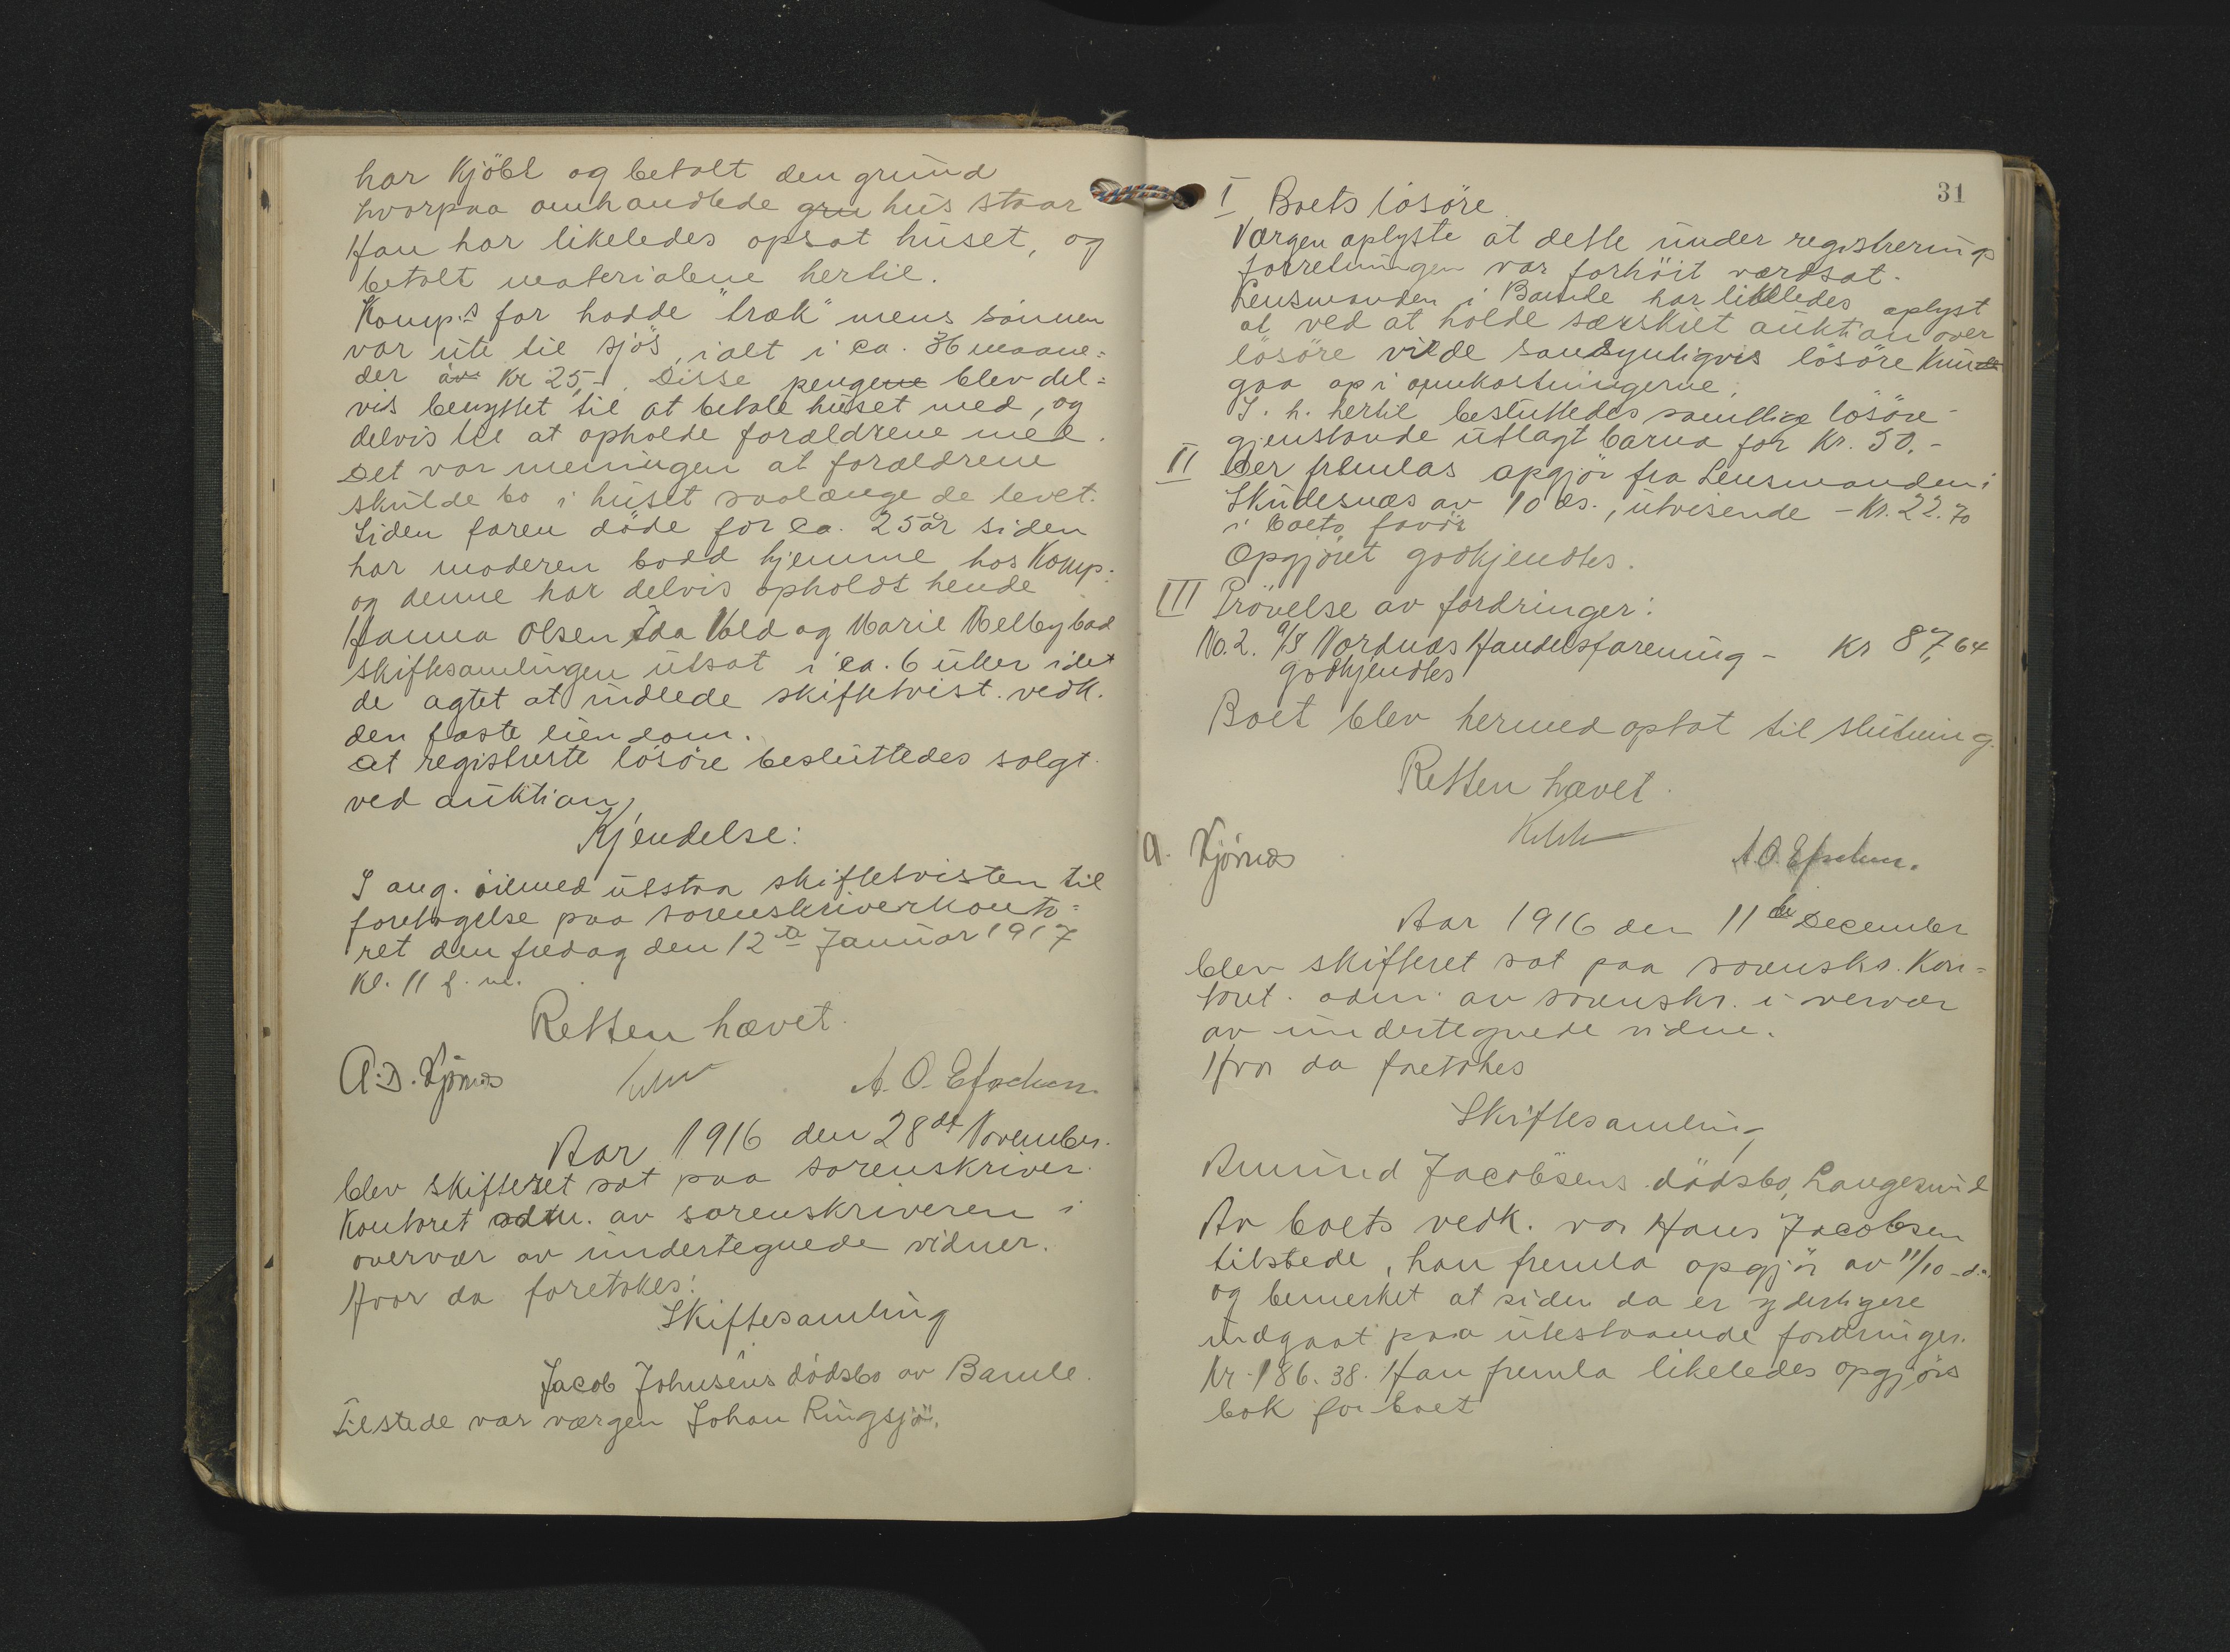 har kjöbt og betalt den grund
hvorpaa omhandlede gru hus staar
Han har likeledes opsat huset, og
betalt materialene hertil.
Komp.s far hadde "træk" mens sönnen
var ute til sjös, ialt i ca. 36 maane=
der av Kr 25,-. Disse pengene blev del=
vis benyttet til at betale huset med, og
delvis til at opholde forældrene med.
Det var meningen at forældrene
skulde bo i huset saalænge de levet.
Siden faren döde for ca. 25 år siden
har moderen bodd hjemme hos Komp.
og denne har delvis opholdt hende
Hanna Olsen Ida Vold og Marie Melby bad
skiftesamlingen utsat i ca. 6 uker idet
de agtet at indlede skiftetvist. vedk.
den faste eiendom.
At registrerte lösöre besluttedes solgt
ved auktion,
Kjendelse:
I ang. eiend utstaa skiftetvisten til
foretagelse paa sorenskriverkonto=
ret den fredag den 12te Januar 1917
Kl. 11 f. m.
Retten hævet.
A.D. Kjönnæs
A. O. Efschen
Aar 1916 den 28de November.
blev skifteret sat paa sorenskriver
kontoret adm. av sorenskriveren i
overvær av undertegnede vidner.
Hvor da foretokes:
Skiftesamling
i
Jacob Johnsens dödsbo av Bamle.
Tilstede var værgen Johan Ringsjö.
31
I Boets lösöre
Værgen oplyste at dette under registrerings
forretningen var forhöit værdsat.
Lensmanden i Bamle har likeledes oplyst
at ved at holde særskilt auktion over
lösöre vilde sandsynligvis lösöre kun
gaa op i omkostningerne.
I. h. hertil besluttedes samtlige lösöre
gjenstande utlagt barna for Kr. 50.-
II Der fremlas opgjör fra Lensmanden i
Skudesnæs av 10 ds., utvisende - Kr. 22.70
i boets favör
Opgjöret godkjendtes.
III Prövelse av fordringer:
No. 2. A/S Nordnæs Handelsforening - Kr 87,64
godkjendtes
Boet blev hermed optat til slutning.
Retten hævet.
A. Kjönnæs
A. O. Efschen.
Aar 1916 den 11te December
blev skifteret sat paa sorenskr. kon=
toret. adm. av sorenskr. i vervær
av undertegnede vidne.
Hvor da foretokes
Skiftesamling
i
Amund Jacobsens dödsbo, Langesund
Av boets vedk. var Hans Jacobsen
tilstede, han fremla opgjör av 11/10 d.a.
og bemerket at siden da er yderligere
indgaat paa utestaaende fordringer.
Kr. 186.38. Han fremla likeledes opgjörs
bok for boet